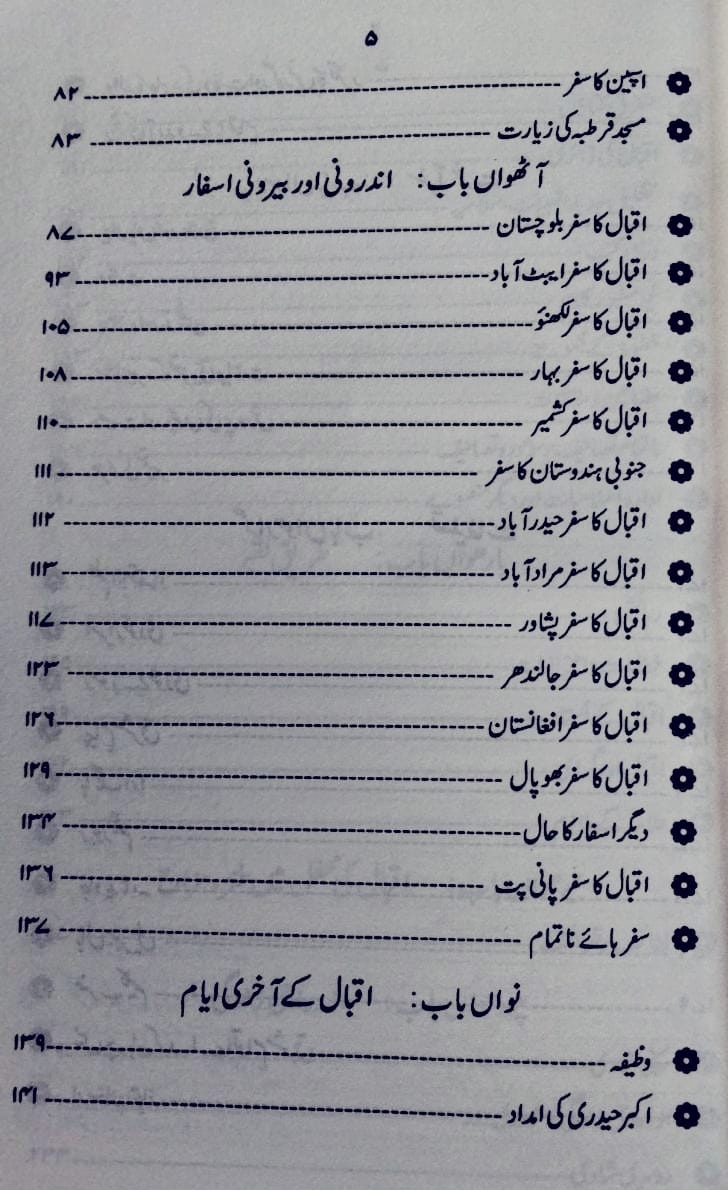 ۵
اسپین کا سفر ۸۲
مسجد قرطبہ کی زیارت ۸۳
آٹھواں باب: اندرونی اور بیرونی اسفار
اقبال کا سفر بلوچستان ۸۷
اقبال کا سفر ایبٹ آباد ۹۳
اقبال کا سفر لکھنؤ ۱۰۵
اقبال کا سفر بہار ۱۰۸
اقبال کا سفر کشمیر ۱۱۰
جنوبی ہندوستان کا سفر ۱۱۱
اقبال کا سفر حیدر آباد ۱۱۲
اقبال کا سفر مراد آباد ۱۱۳
اقبال کا سفر پشاور ۱۱۷
اقبال کا سفر جالندھر ۱۲۳
اقبال کا سفر افغانستان ۱۲۶
اقبال کا سفر بھوپال ۱۲۹
دیگر اسفار کا حال ۱۳۴
اقبال کا سفر پانی پت ۱۳۶
سفر ہائے ناتمام ۱۳۷
نواں باب: اقبال کے آخری ایام
وظیفہ ۱۳۹
اکبر حیدری کی امداد ۱۴۱